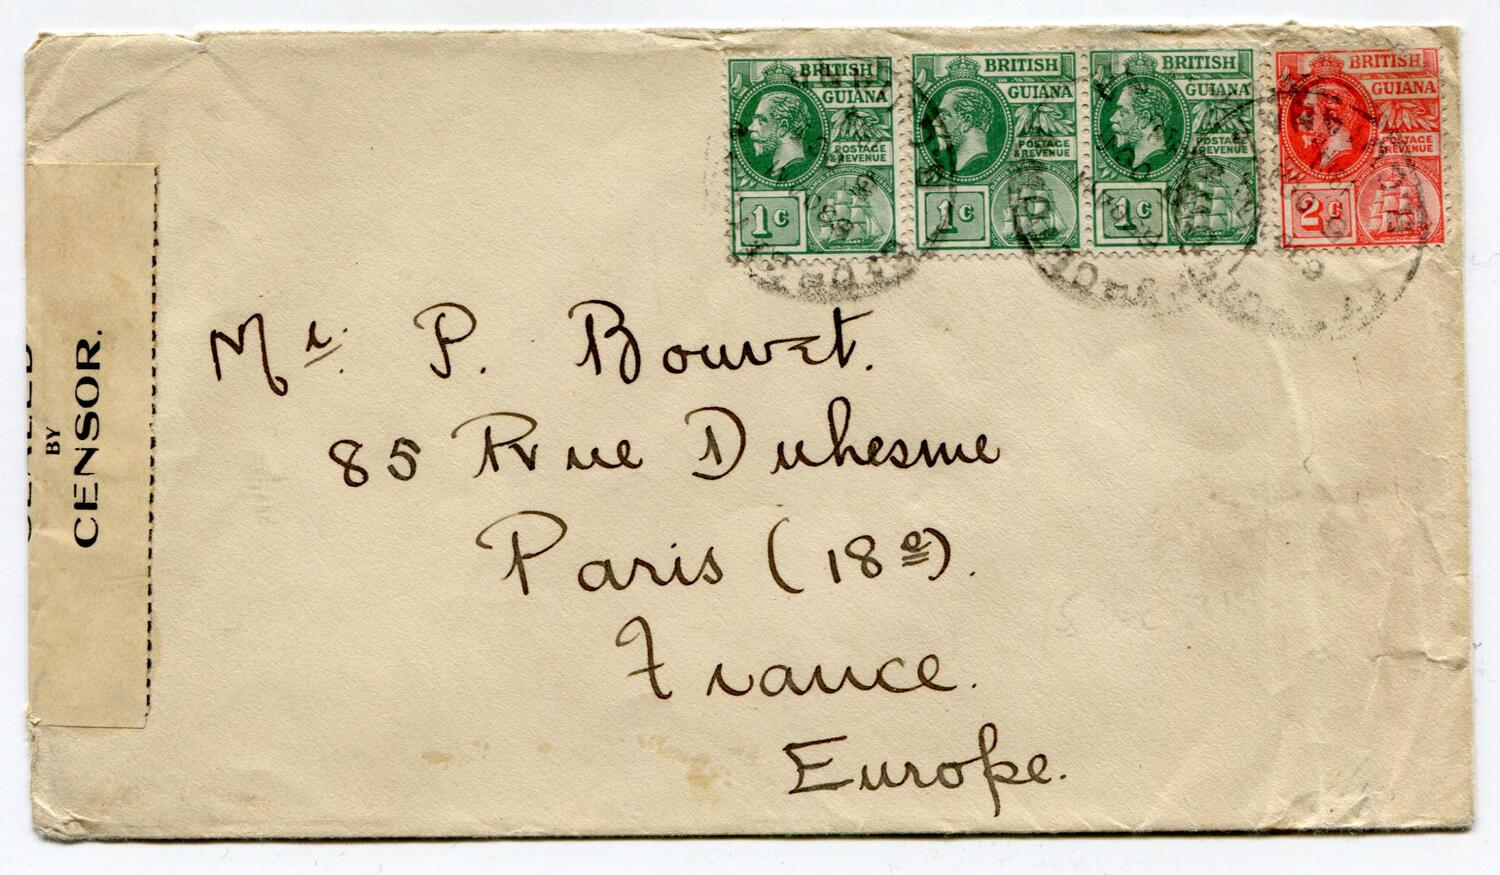 BRITISH
GUIANA
POSTAGE
& REVENUE
1c
BRITISH
GUIANA
POSTAGE
& REVENUE
1c
BRITISH
GUIANA
POSTAGE
& REVENUE
1c
BRITISH
GUIANA
POSTAGE
& REVENUE
2c
BY
CENSOR.
Mr. P. Bouvet.
85 Rue Duhesme
Paris (18e).
France.
Europe.